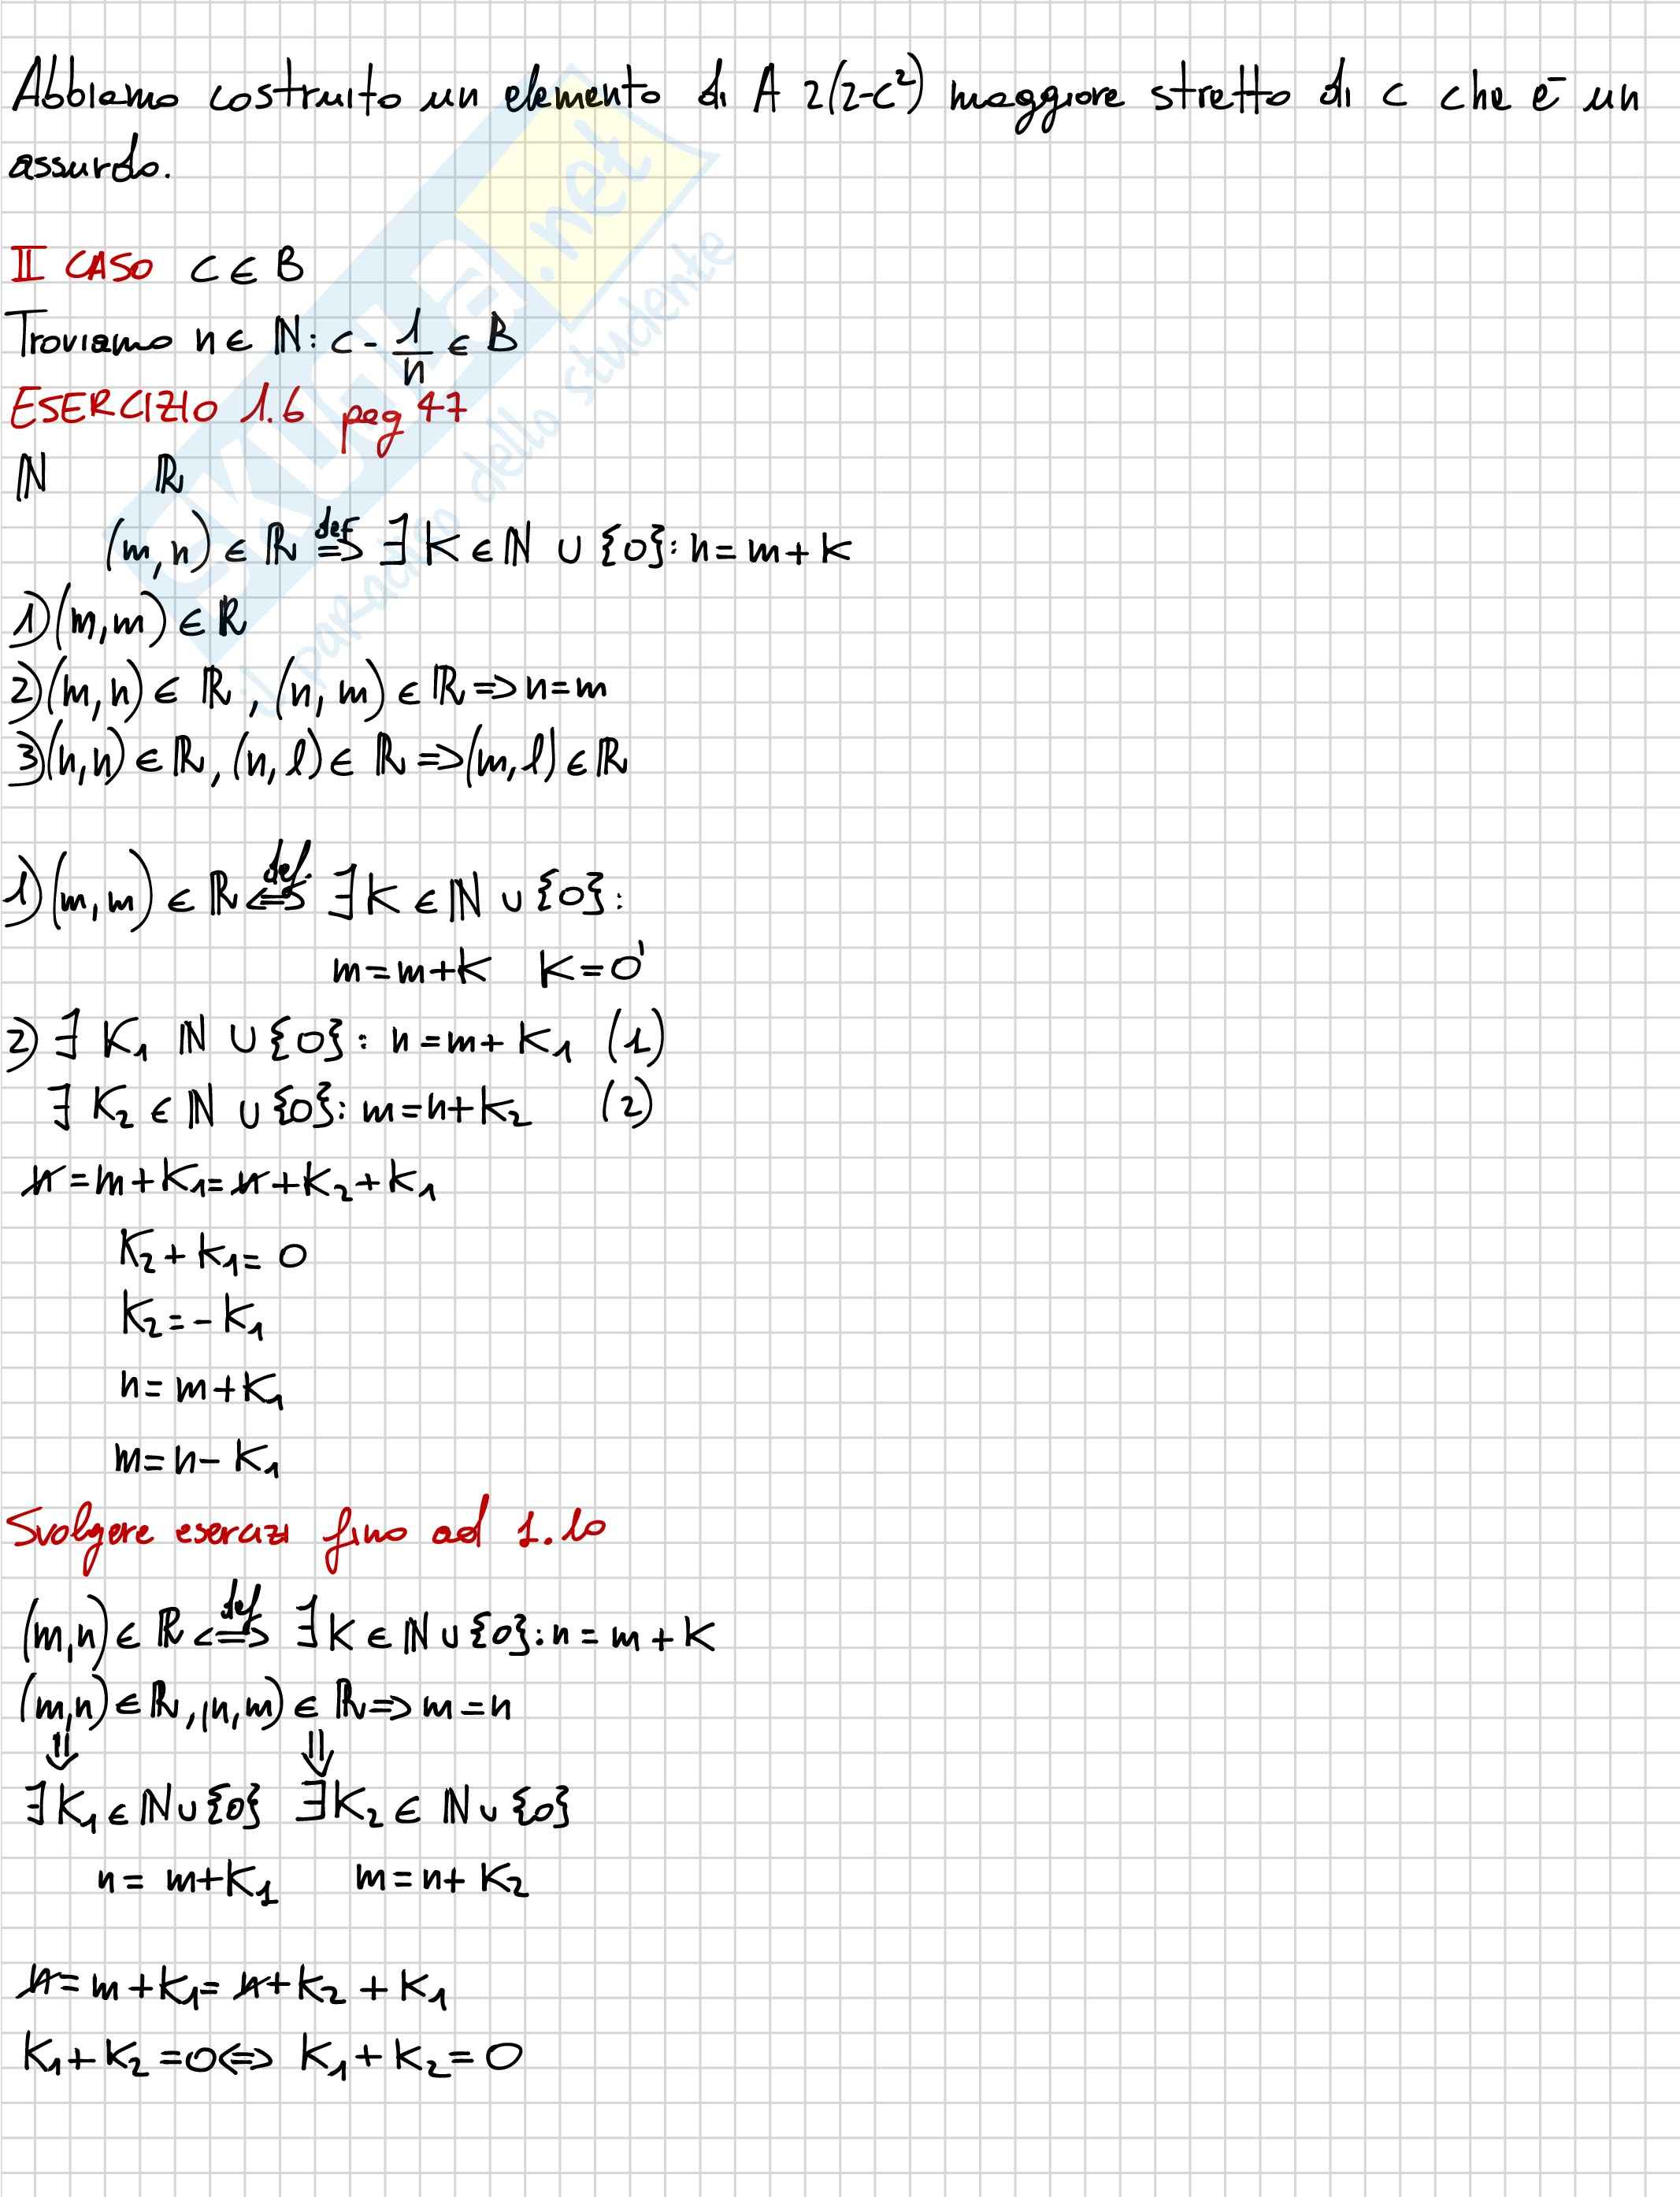 Abbiamo costruito un elemento di A 2(2-c²) maggiore stretto di c che è un
assurdo.
II CASO C ∈ B
Troviamo n ∈ ℕ: c - 1/n ∈ B
ESERCIZIO 1.6 pag 47
ℕ ℝ
(m, n) ∈ ℝ ⇔def ∃ K ∈ ℕ ∪ {0}: n = m + K
1) (m, m) ∈ ℝ
2) (m, n) ∈ ℝ, (n, m) ∈ ℝ => n = m
3) (n, n) ∈ ℝ, (n, l) ∈ ℝ => (m, l) ∈ ℝ
1) (m, m) ∈ ℝ <=>def. ∃ K ∈ ℕ ∪ {0}:
m = m + K K = 0
2) ∃ K₁ ℕ ∪ {0}: n = m + K₁ (1)
∃ K₂ ∈ ℕ ∪ {0}: m = n + K₂ (2)
n = m + K₁ = n + K₂ + K₁
K₂ + K₁ = 0
K₂ = - K₁
n = m + K₁
m = n - K₁
Svolgere esercizi fino ad 1.10
(m, n) ∈ ℝ <=>def ∃ K ∈ ℕ ∪ {0}: n = m + K
(m, n) ∈ ℝ, (n, m) ∈ ℝ => m = n
⇓ ⇓
∃ K₁ ∈ ℕ ∪ {0} ∃ K₂ ∈ ℕ ∪ {0}
n = m + K₁ m = n + K₂
n = m + K₁ = n + K₂ + K₁
K₁ + K₂ = 0 <=> K₁ + K₂ = 0
SKUOLA.net
il paradiso dello studente